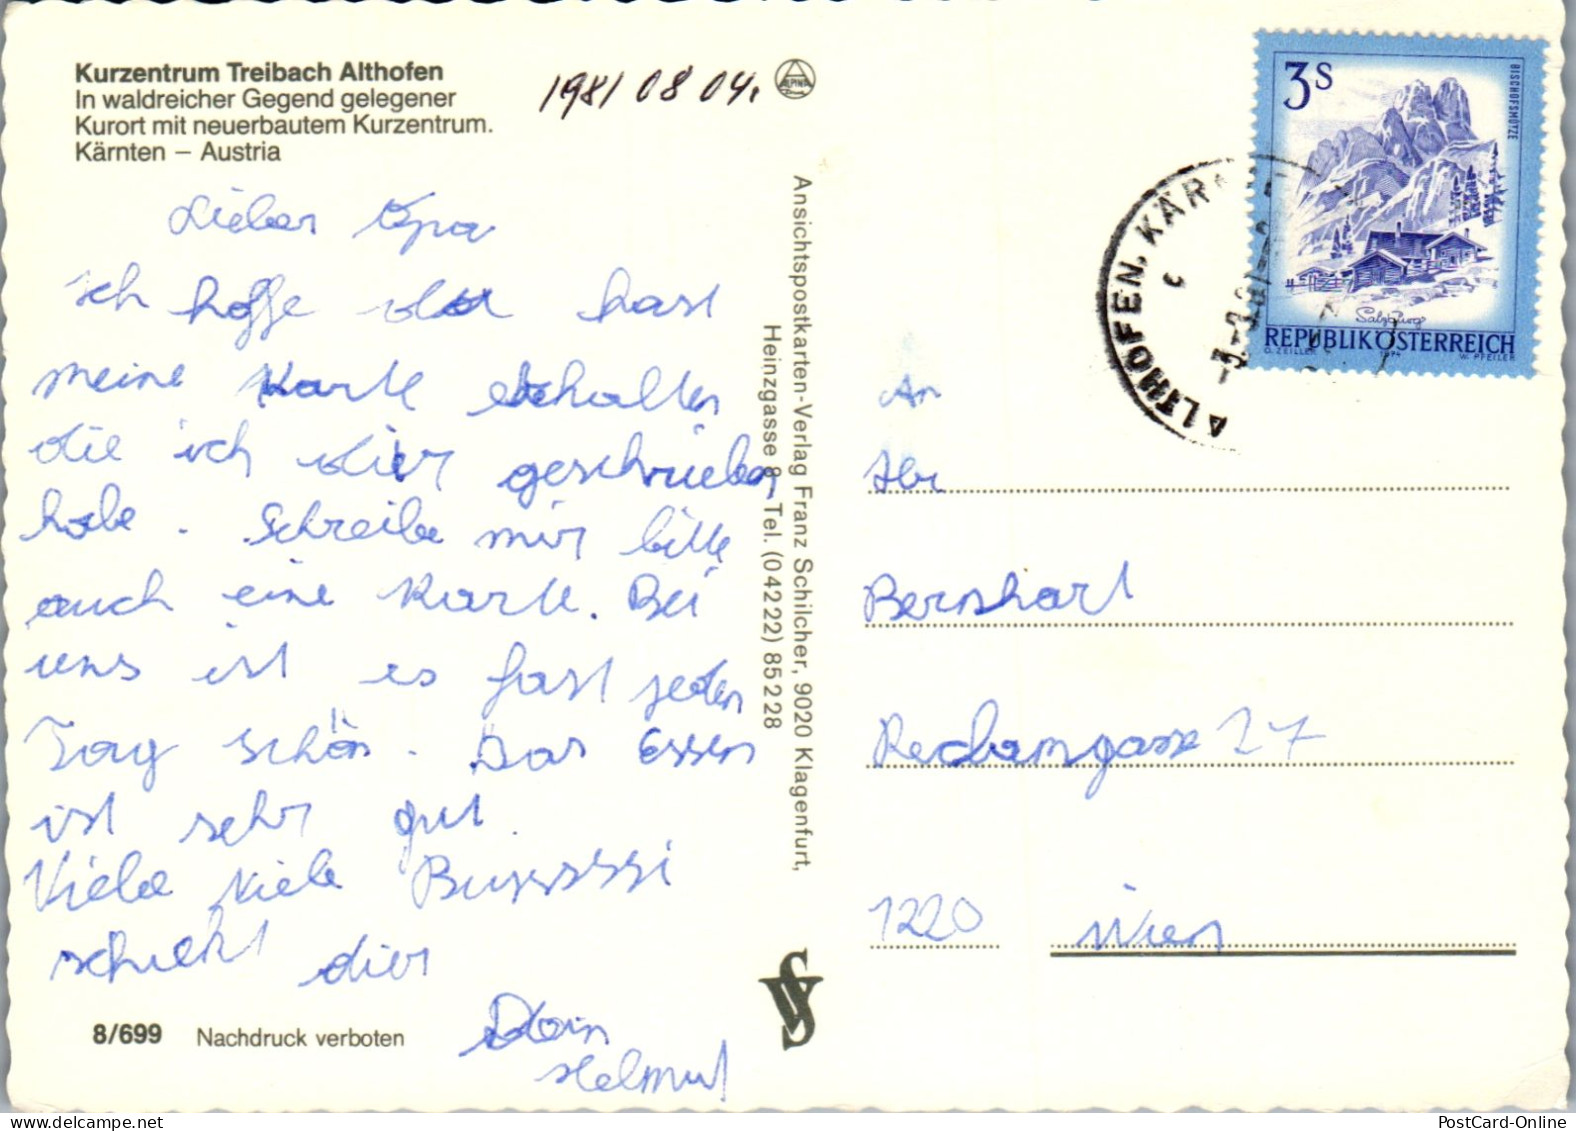 Kurzentrum Treibach Althofen
In waldreicher Gegend gelegener
Kurort mit neuerbautem Kurzentrum.
Kärnten – Austria
1981 08 04.
ALPINA
Lieber Opa
ich hoffe du hast
meine Karte erhalten
die ich dier geschrieben
habe. Schreibe mir bitte
auch eine Karte. Bei
uns ist es fast jeden
Tag schön. Das Essen
ist sehr gut.
Viele viele Bussssi
schickt dier
Dein
Helmut
8/699 Nachdruck verboten
Ansichtspostkarten-Verlag Franz Schilcher, 9020 Klagenfurt,
Heinzgasse 8, Tel. (04222) 85228
SV
3S
BISCHOFSMÜTZE
Salzburg
REPUBLIK ÖSTERREICH
O. ZEILLER 1974 W. PFEILER
ALTHOFEN, KÄR
c
An
Bernhart
Reclamgasse 27
1220 Wien
PostCard-Online